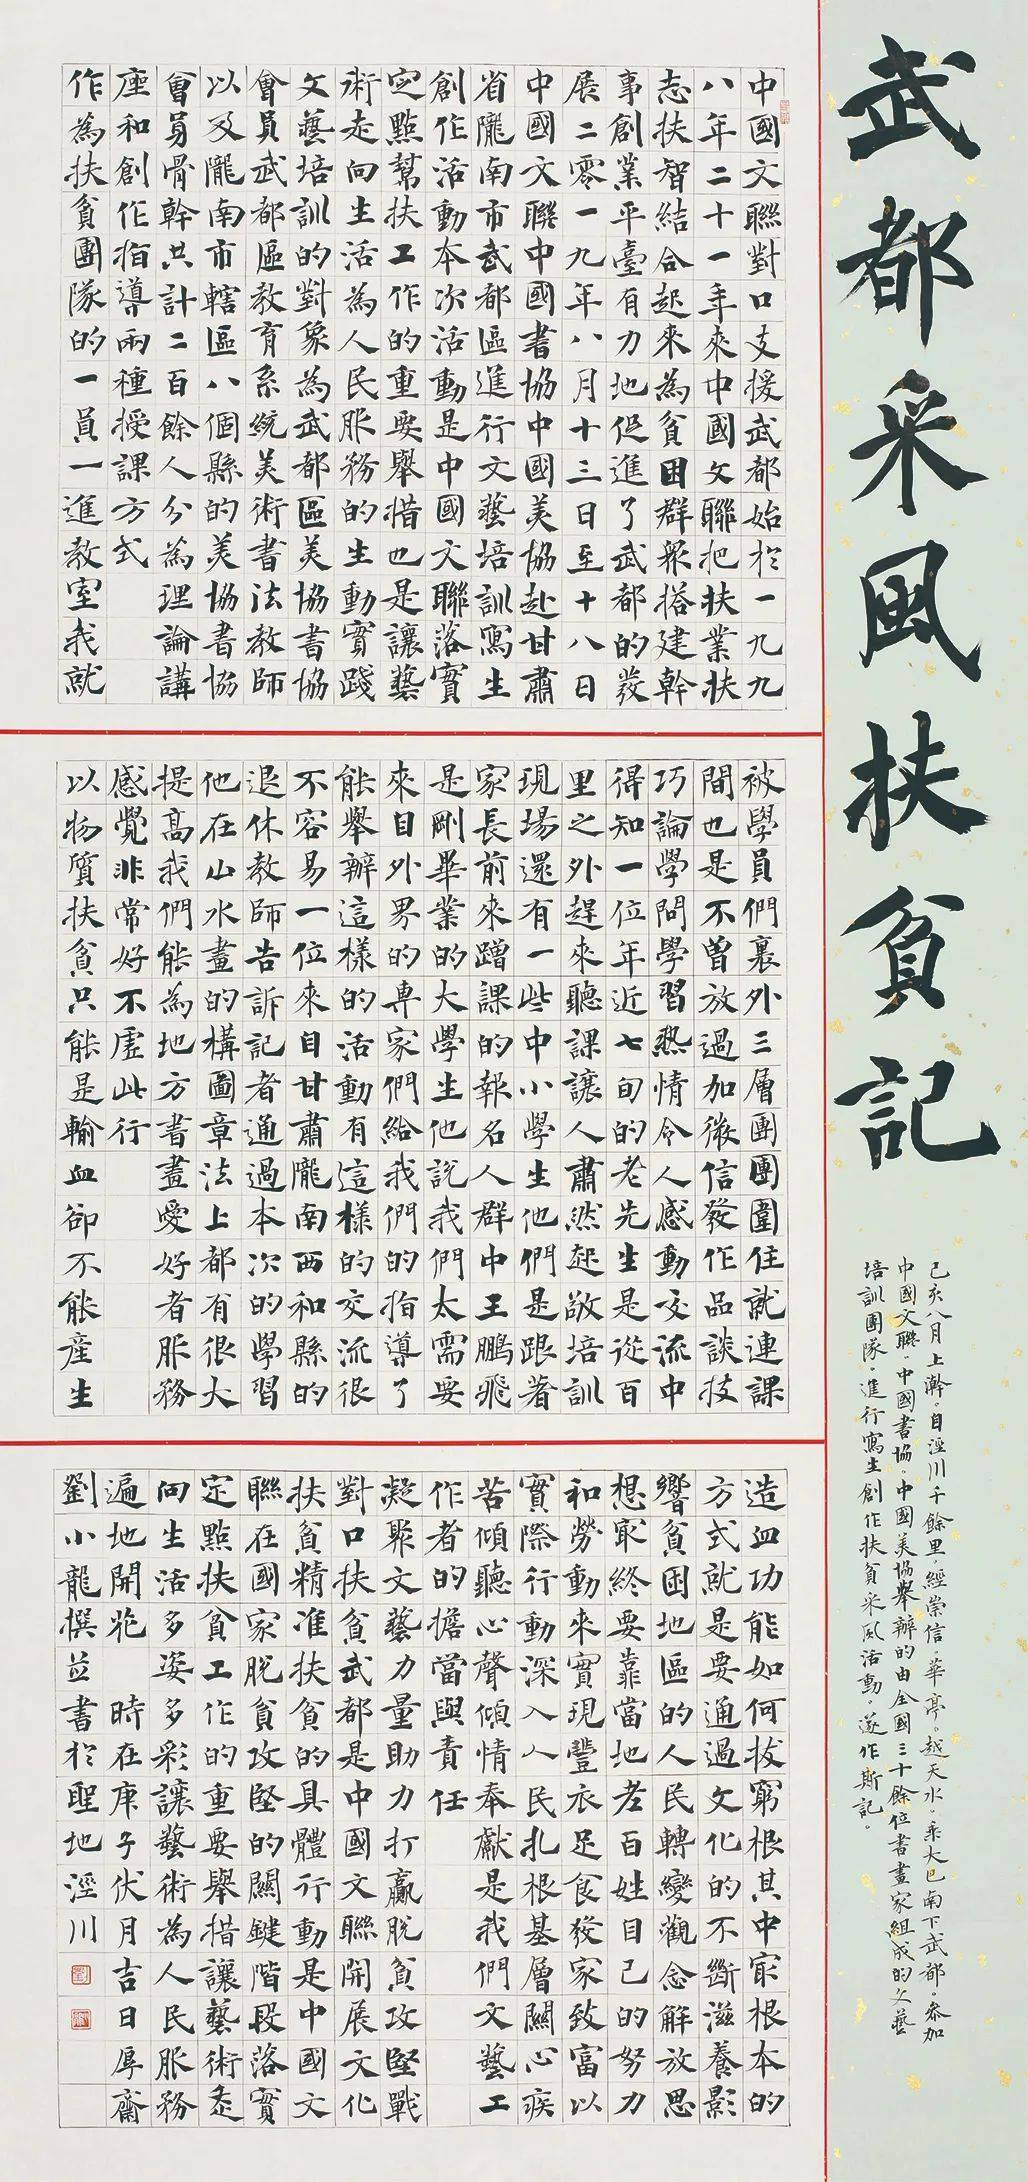 武都采風扶貧記
己亥八月上澣。自涇川千餘里。經崇信。華亭。越天水。乘大巴南下武都。參加
中國文聯。中國書協。中國美協舉辦的由全國三十餘位書畫家組成的文藝
培訓團隊。進行寫生創作扶貧采風活動。遂作斯記。
中國文聯對口支援武都始於一九九九
八年二十一年來中國文聯把扶業扶
志扶智結合起來為貧困群眾搭建幹
事創業平臺有力地促進了武都的發
展二零一九年八月十三日至十八日
中國文聯中國書協中國美協赴甘肅
省隴南市武都區進行文藝培訓寫生
創作活動本次活動是中國文聯落實
定點幫扶工作的重要舉措也是讓藝
術走向生活為人民服務的生動實踐
文藝培訓的對象為武都區美協書協
會員武都區教育系統美術書法教師
以及隴南市轄區八個縣的美協書協
會員骨幹共計二百餘人分為理論講
座和創作指導兩種授課方式
作為扶貧團隊的一員一進教室我就
被學員們裏外三層團團圍住就連課
間也是不曾放過加微信發作品談技
巧論學問學習熱情令人感動交流中
得知一位年近七旬的老先生是從百
里之外趕來聽課讓人肅然起敬培訓
現場還有一些中小學生他們是跟著
家長前來蹭課的報名人群中王鵬飛
是剛畢業的大學生他說我們太需要
來自外界的專家們給我們的指導了
能舉辦這樣的活動有這樣的交流很
不容易一位來自甘肅隴南西和縣的
退休教師告訴記者通過本次的學習
他在山水畫的構圖章法上都有很大
提高我們能為地方書畫愛好者服務
感覺非常好不虛此行
以物質扶貧只能是輸血卻不能產生
造血功能如何拔窮根其中最根本的
方式就是要通過文化的不斷滋養影
響貧困地區的人民轉變觀念解放思
想最終要靠當地老百姓自己的努力
和勞動來實現豐衣足食發家致富以
實際行動深入人民扎根基層關心疾
苦傾聽心聲傾情奉獻是我們文藝工
作者的擔當與責任
凝聚文藝力量助力打贏脫貧攻堅戰
對口扶貧武都是中國文聯開展文化
扶貧精准扶貧的具體行動是中國文
聯在國家脫貧攻堅的關鍵階段落實
定點扶貧工作的重要舉措讓藝術走
向生活多姿多彩讓藝術為人民服務
遍地開花 時在庚子伏月吉日厚齋
劉小龍撰並書於聖地涇川